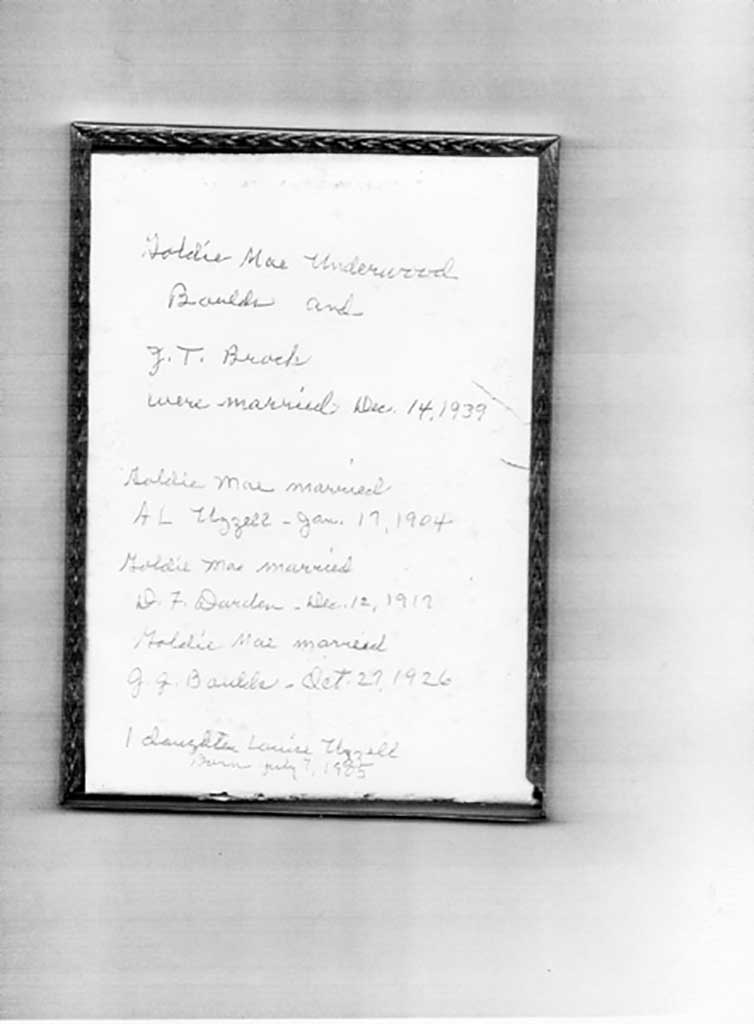 Goldie Mae Underwood
Boulds and
J. T. Brock
were married Dec. 14, 1939
Goldie Mae married
A L Uzzell - Jan. 17, 1904
Goldie Mae married
D. F. Darden - Dec. 12, 1917
Goldie Mae married
G. G. Boulds - Oct. 27, 1926
1 daughter Louise Uzzell
Born July 7, 1905